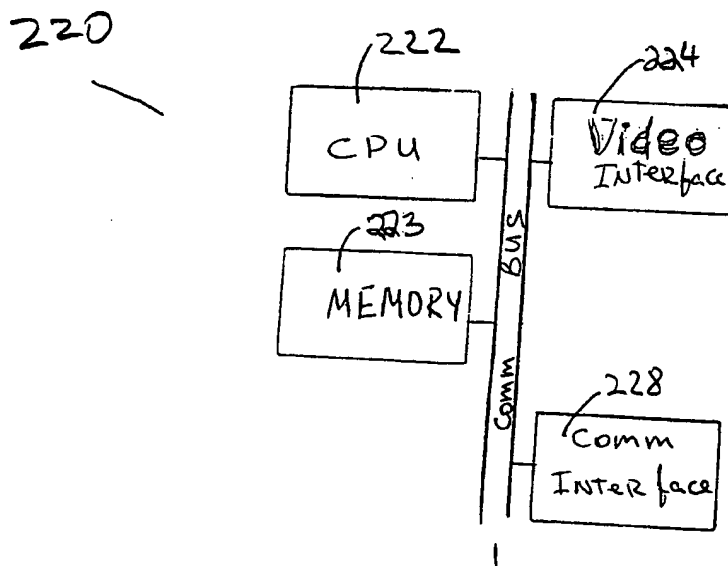 220
222
CPU
224
Video
INTERface
223
MEMORY
Comm BUS
228
Comm
INTERface